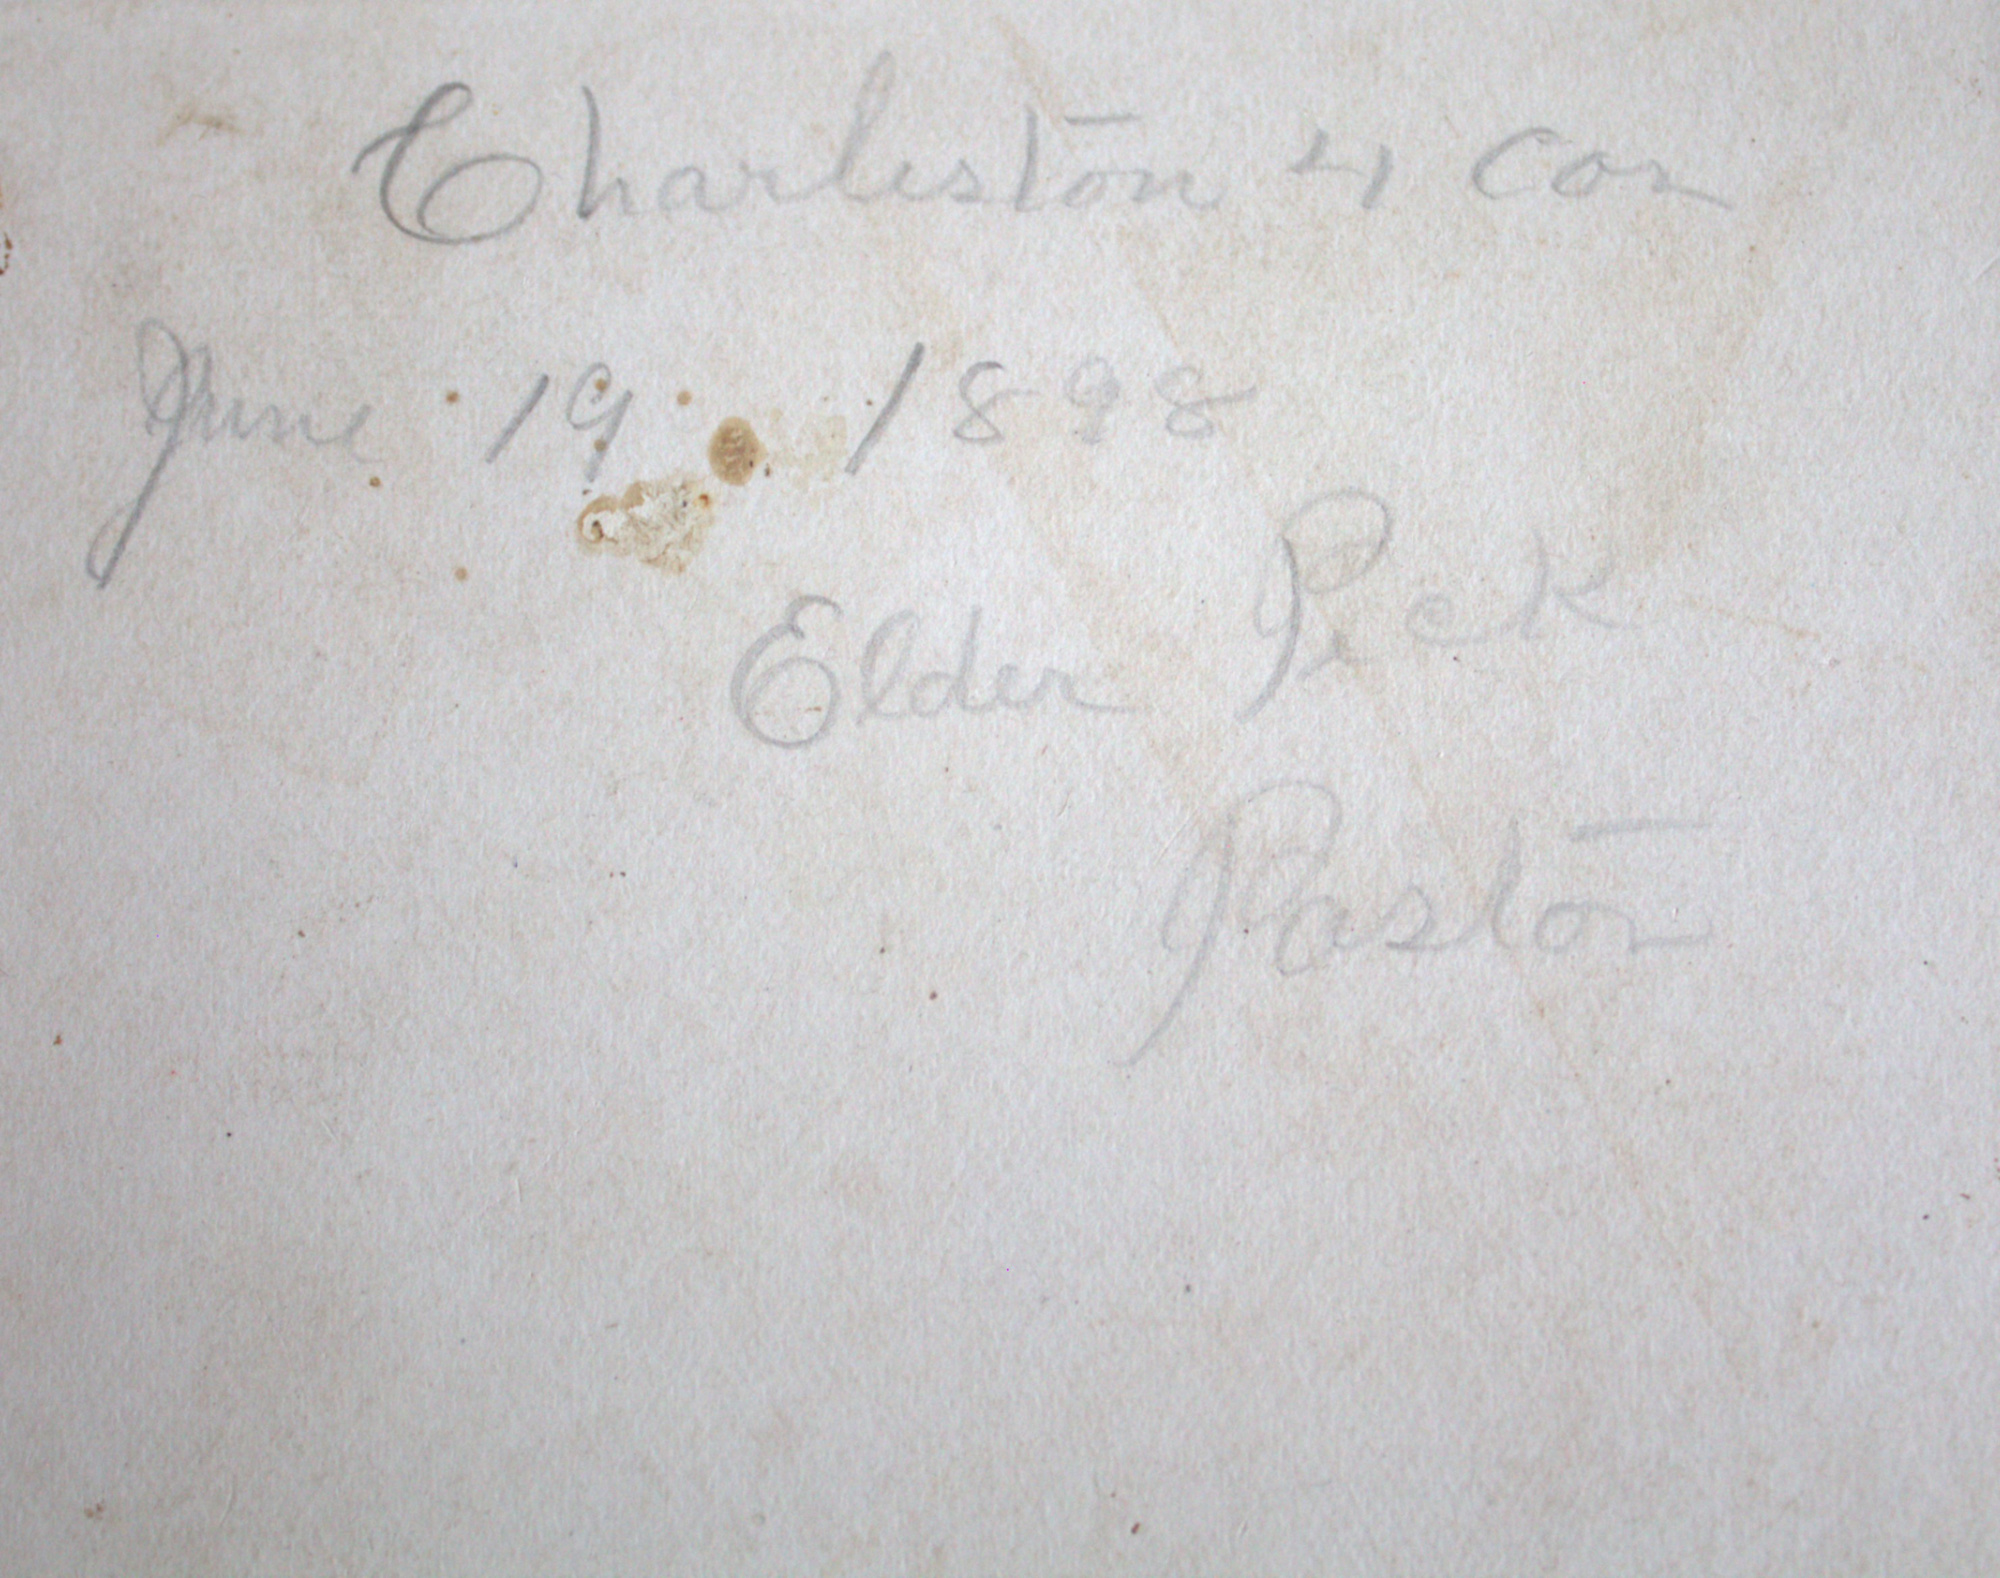 Charleston 4 Cor
June 19 1898
Elder Peck
Pastor